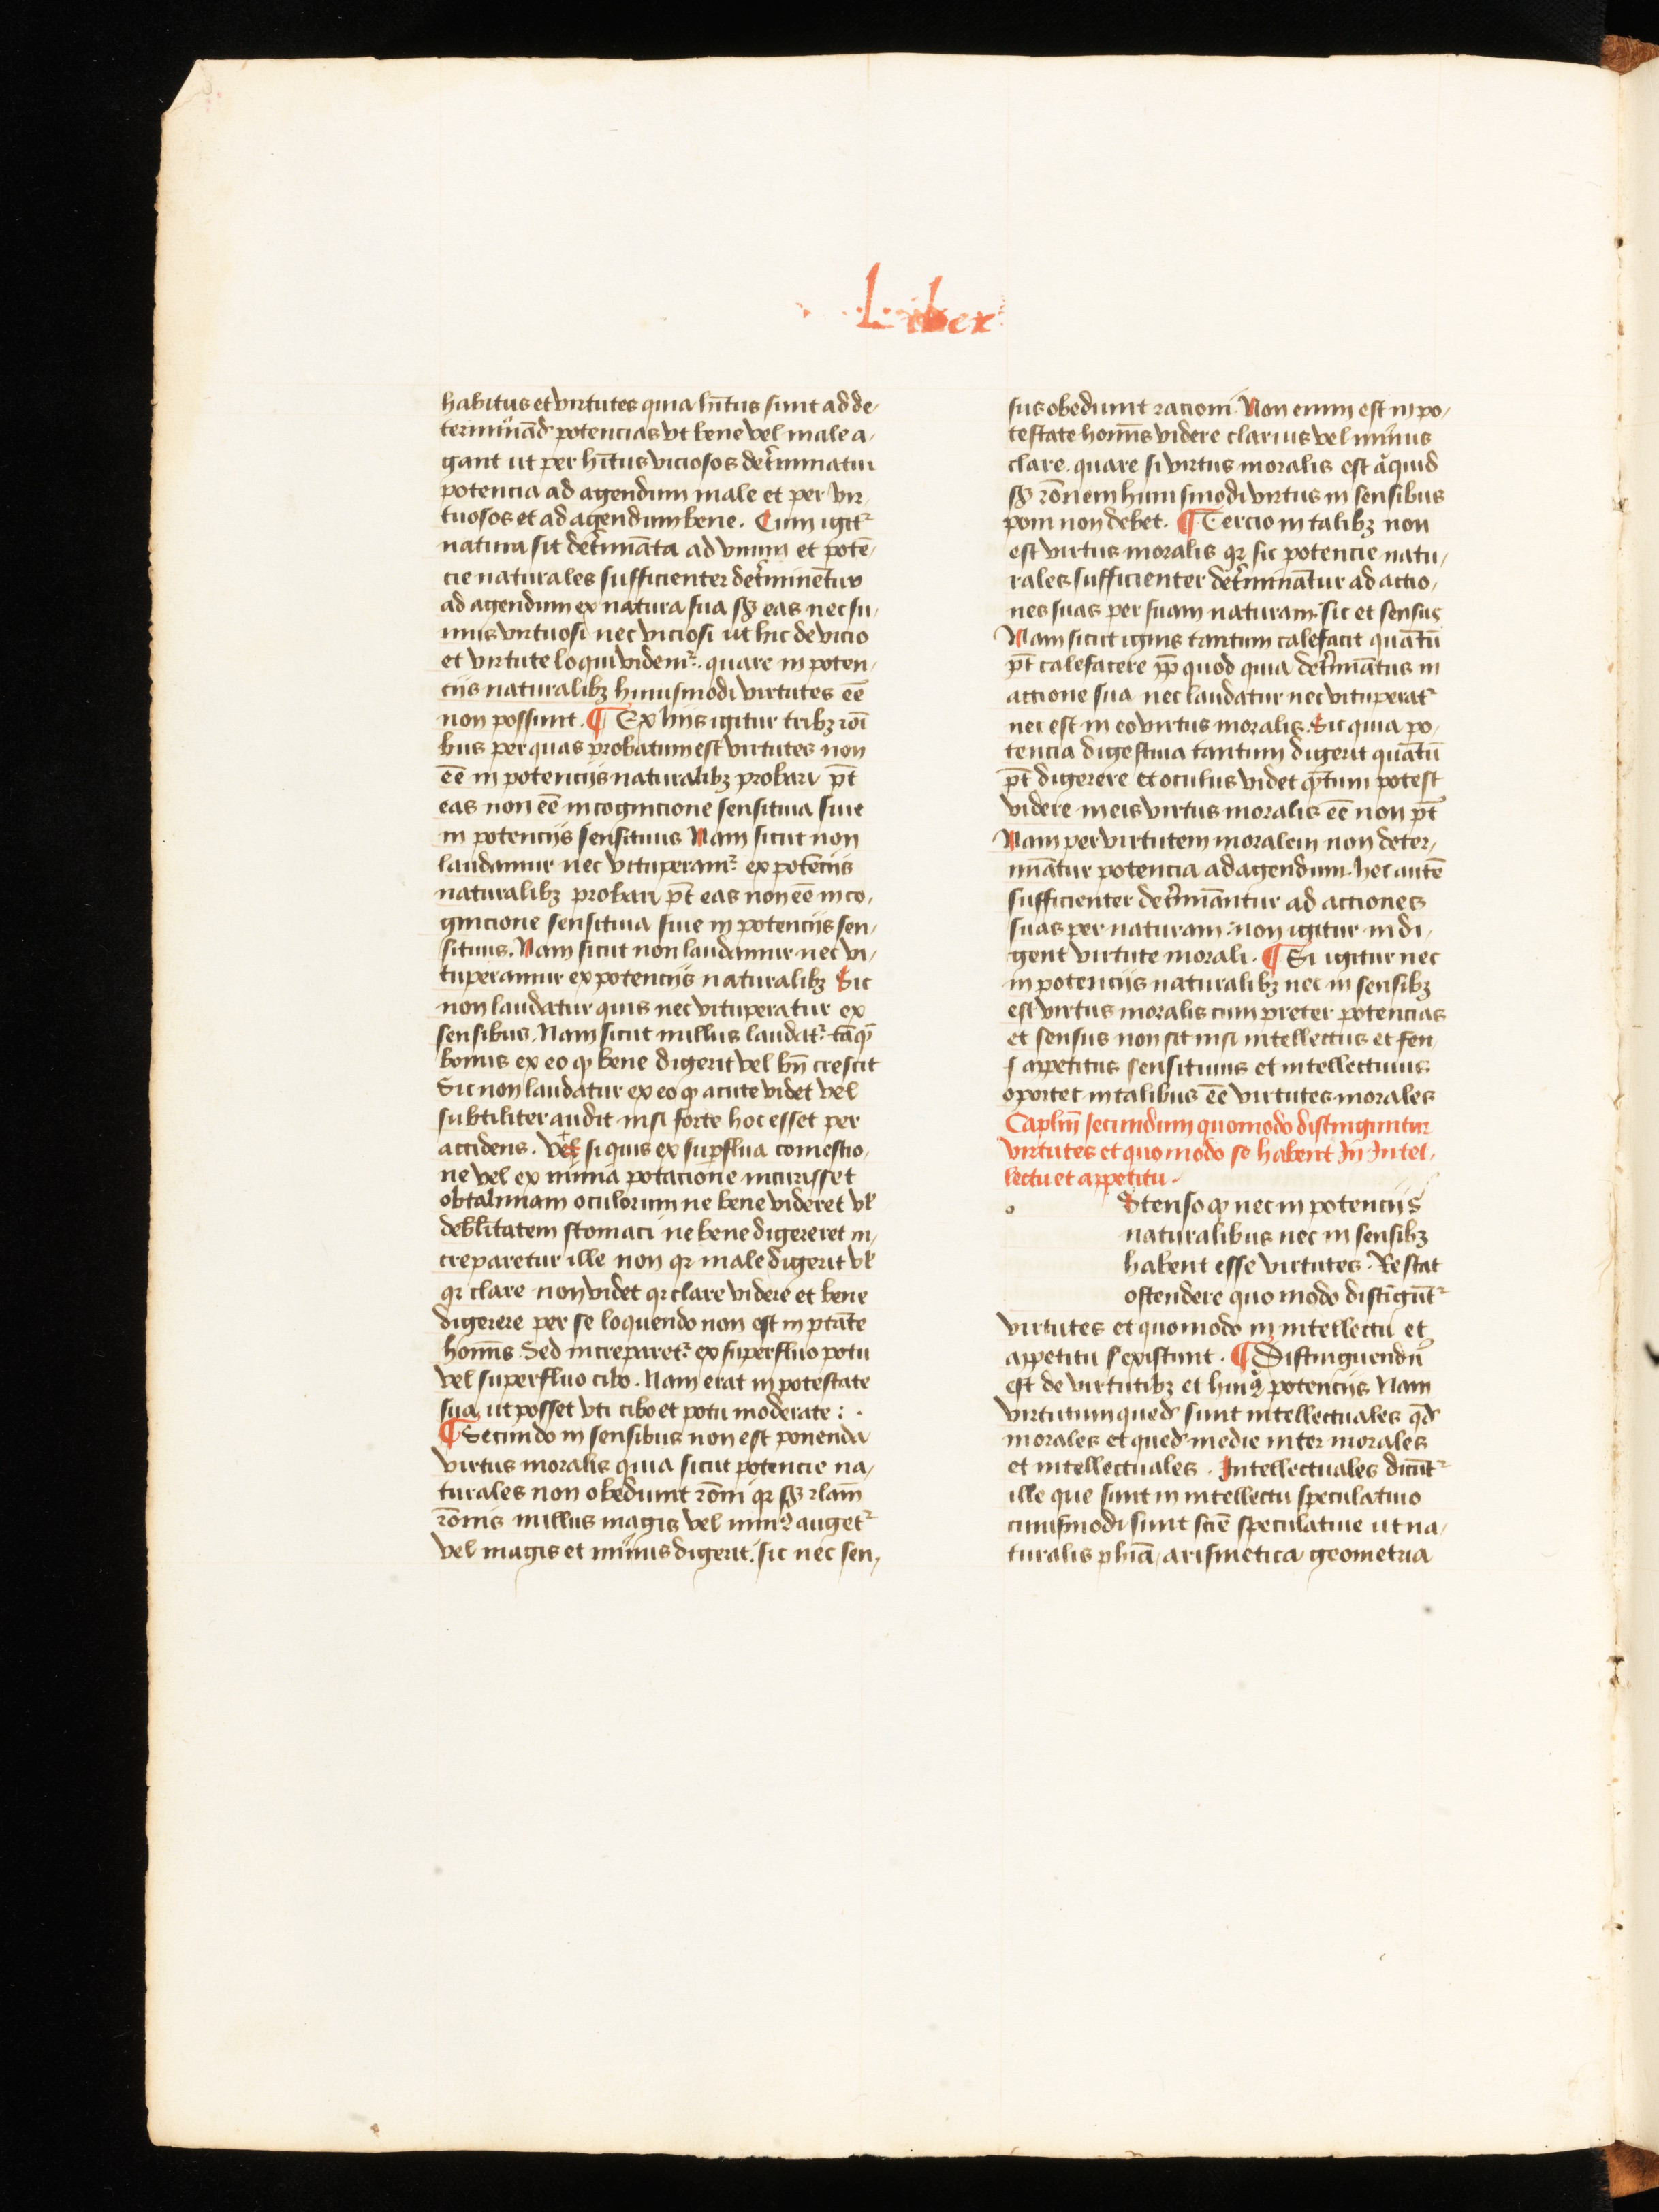 Liber
habitus et virtutes quia hītus sunt ad de,
termīnād potencias vt bene vel male a,
gant ut per hītus viciosos det̄minatur
potencia ad agendum male et per vir,
tuosos et ad agendum bene. Cum igitꝛ
natura sit det̄mināta ad vnum et potē,
cie naturales sufficienter det̄minētur
ad agendum ex natura sua sꝫ eas nec su,
mus virtuosi nec viciosi ut hic de vicio
et virtute loqui videmꝛ. quare in poten,
ciis naturalibꝫ huiusmodi virtutes ēē
non possunt. ¶ Ex hiis igitur tribꝫ rōi
bus per quas probatum est virtutes non
ēē in potenciis naturalibꝫ probari pt̄
eas non ēē in cognicione sensitiua siue
in potenciis sensitiuis Nam sicut non
laudamur nec vituperamꝛ ex potēciis
naturalibꝫ probari pt̄ eas non ēē in co,
gnicione sensitiua siue in potenciis sen,
sitiuis. Nam sicut non laudamur nec vi,
tuperamur ex potenciis naturalibꝫ Sic
non laudatur quis nec vituperatur ex
sensibus. Nam sicut nullus laudatꝛ tāꝙ̄
bonus ex eo ꝙ bene digerit vel bn̄ crescit
Sic non laudatur ex eo ꝙ acute videt vel
subtiliter audit nisi forte hoc esset per
accidens. Vt si quis ex suꝑflua comestio,
ne vel ex nimia potacione incurisset
obtalmiam oculorum ne bene videret vl̄
deblitatem stomaci ne bene digereret in,
creparetur ille non qꝛ male digerit vl̄
qꝛ clare non videt qꝛ clare videre et bene
digerere per se loquendo non est in ptāte
homīs Sed increparetꝛ ex superfluo potu
vel superfluo cibo. Nam erat in potestate
sua ut posset vti cibo et potu moderate : .
¶ Secundo in sensibus non est ponenda
virtus moralis quia sicut potencie na,
turales non obediunt rōni qꝛ sꝫ rlam̄
rōnis nullus magis vel minꝰ augetꝛ
vel magis et minus digerit. sic nec sen,
sus obediunt racioni. Non enim est in po,
testate homīs videre clarius vel minus
clare. quare si virtus moralis est aͥquid
sꝫ rōnem huiusmodi virtus in sensibus
poni non debet. ¶ Tercio in talibꝫ non
est virtus moralis qꝛ sic potencie natu,
rales sufficienter det̄minātur ad actio,
nes suas per suam naturam. sic et sensus
Nam sicut ignis tantum calefacit quātū
pt̄ calefacere ꝓp̄ quod quia det̄minātus in
actione sua nec laudatur nec vituperatꝛ
nec est in eo virtus moralis. Sic quia po,
tencia digestiua tantum digerit quātū
pt̄ digerere et oculus videt qͣtum potest
videre in eis virtus moralis ēē non pt̄
Nam per virtutem moralem non deter,
minātur potencia ad agendum. hec autē
sufficienter det̄minātur ad actiones
suas per naturam. non igitur indi,
gent virtute morali. ¶ Si igitur nec
in potenciis naturalibꝫ nec in sensibꝫ
est virtus moralis cum preter potencias
et sensus non sit nisi intellectus et sen
s appetitus sensitiuus et intellectiuus
oportet in talibus ēē virtutes morales
Caplm̄ secundum quomodo distinguntur
virtutes et quomodo se habent In Intel,
lectu et appetitu.
o Stenso ꝙ nec in potenciis
naturalibus nec in sensibꝫ
habent esse virtutes. Restat
ostendere quo modo distīgūtꝛ
virtutes et quomodo in intellectu et
appetitu s existunt. ¶ Distinguendū
est de virtutibꝫ et huiꝰ potenciis Nam
virtutum qued sunt intellectuales qd̄
morales et qued medie inter morales
et intellectuales. Intellectuales dicūtꝛ
ille que sunt in intellectu speculatiuo
cuiusmodi sunt sciē speculatiue ut na,
turalis phīa, arismetica geometria